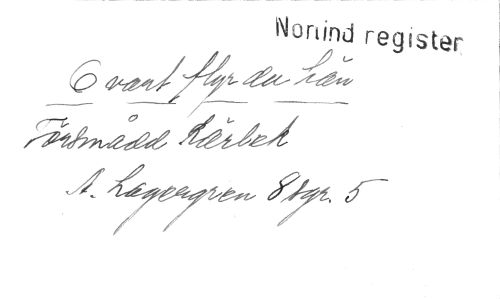 Norlind register
O vart flyr du hän
Försmådd Kärlek
A. Lagergren 8 sgr. 5